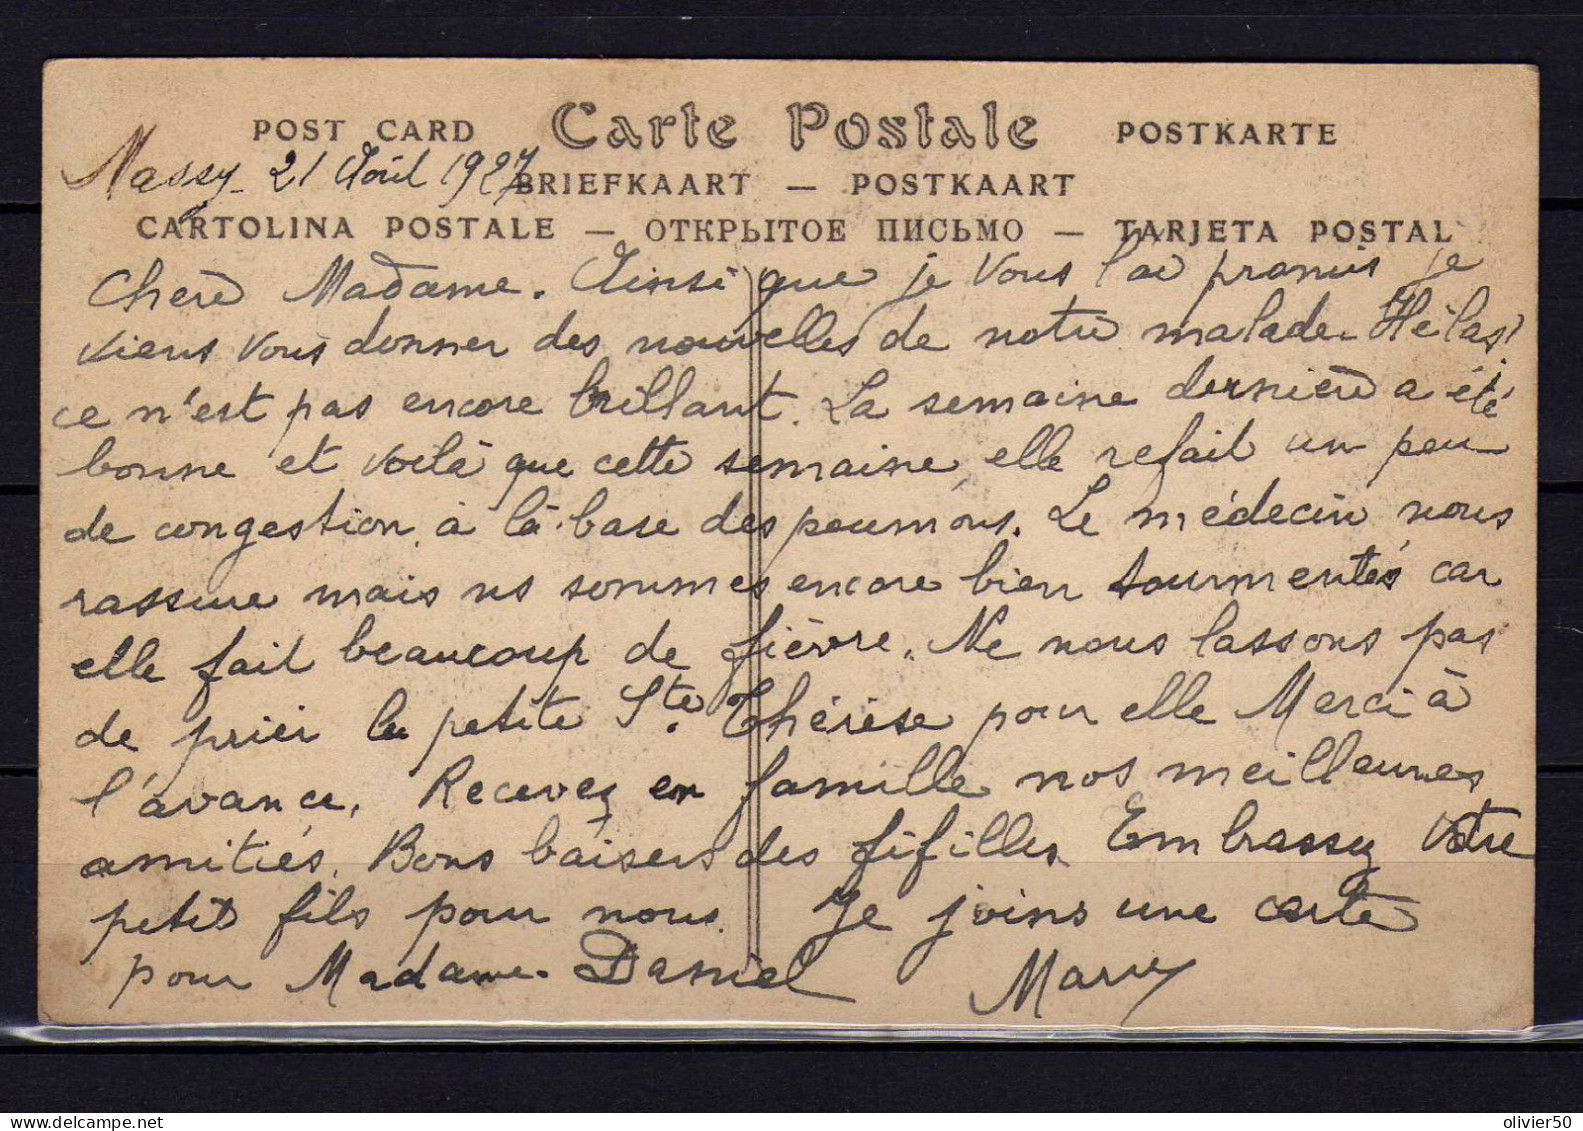 POST CARD Carte Postale POSTKARTE
Massy 21 Août 1927
BRIEFKAART — POSTKAART
CARTOLINA POSTALE — ОТКРЫТОЕ ПИСЬМО — TARJETA POSTAL
Chère Madame. Ainsi que je vous l'ai promis je
viens vous donner des nouvelles de notre malade. Hélas!
ce n'est pas encore brillant. La semaine dernière a été
bonne et voilà que cette semaine, elle refait un peu
de congestion à la base des poumons. Le médecin nous
rassure mais ns sommes encore bien tourmentés car
elle fait beaucoup de fièvre. Ne nous lassons pas
de prier la petite Ste Thérèse pour elle Merci à
l'avance. Recevez en famille nos meilleures
amitiés. Bons baisers des fifilles Embrassez votre
petit fils pour nous. Je joins une carte
pour Madame Daniel
olivier50